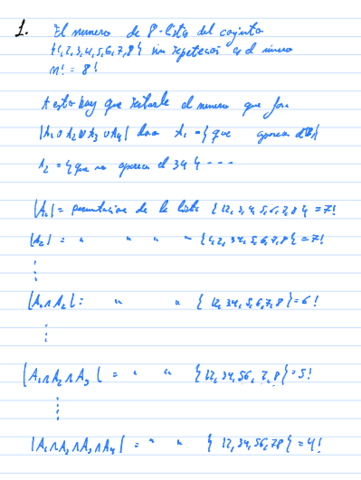 1. El numero de 8-listas del conjunto
{1,2,3,4,5,6,7,8} sin repetición es el numero
n! = 8!
A esto hay que restarle el numero que son
|A₁∪A₂∪A₃∪A₄| A₁ = {que aparece
A₂ = {que no aparece el 34} - - -
|A₁| = permutaciones de la lista {12,3,4,5,6,7,8} = 7!
|A₂| = " " " " {1,2,34,5,6,7,8} = 7!
|A₁∩A₂| = " " {12,34,5,6,7,8} = 6!
|A₁∩A₂∩A₃| = " " {12,34,56,7,8} = 5!
|A₁∩A₂∩A₃∩A₄| = " " {12,34,56,78} = 4!